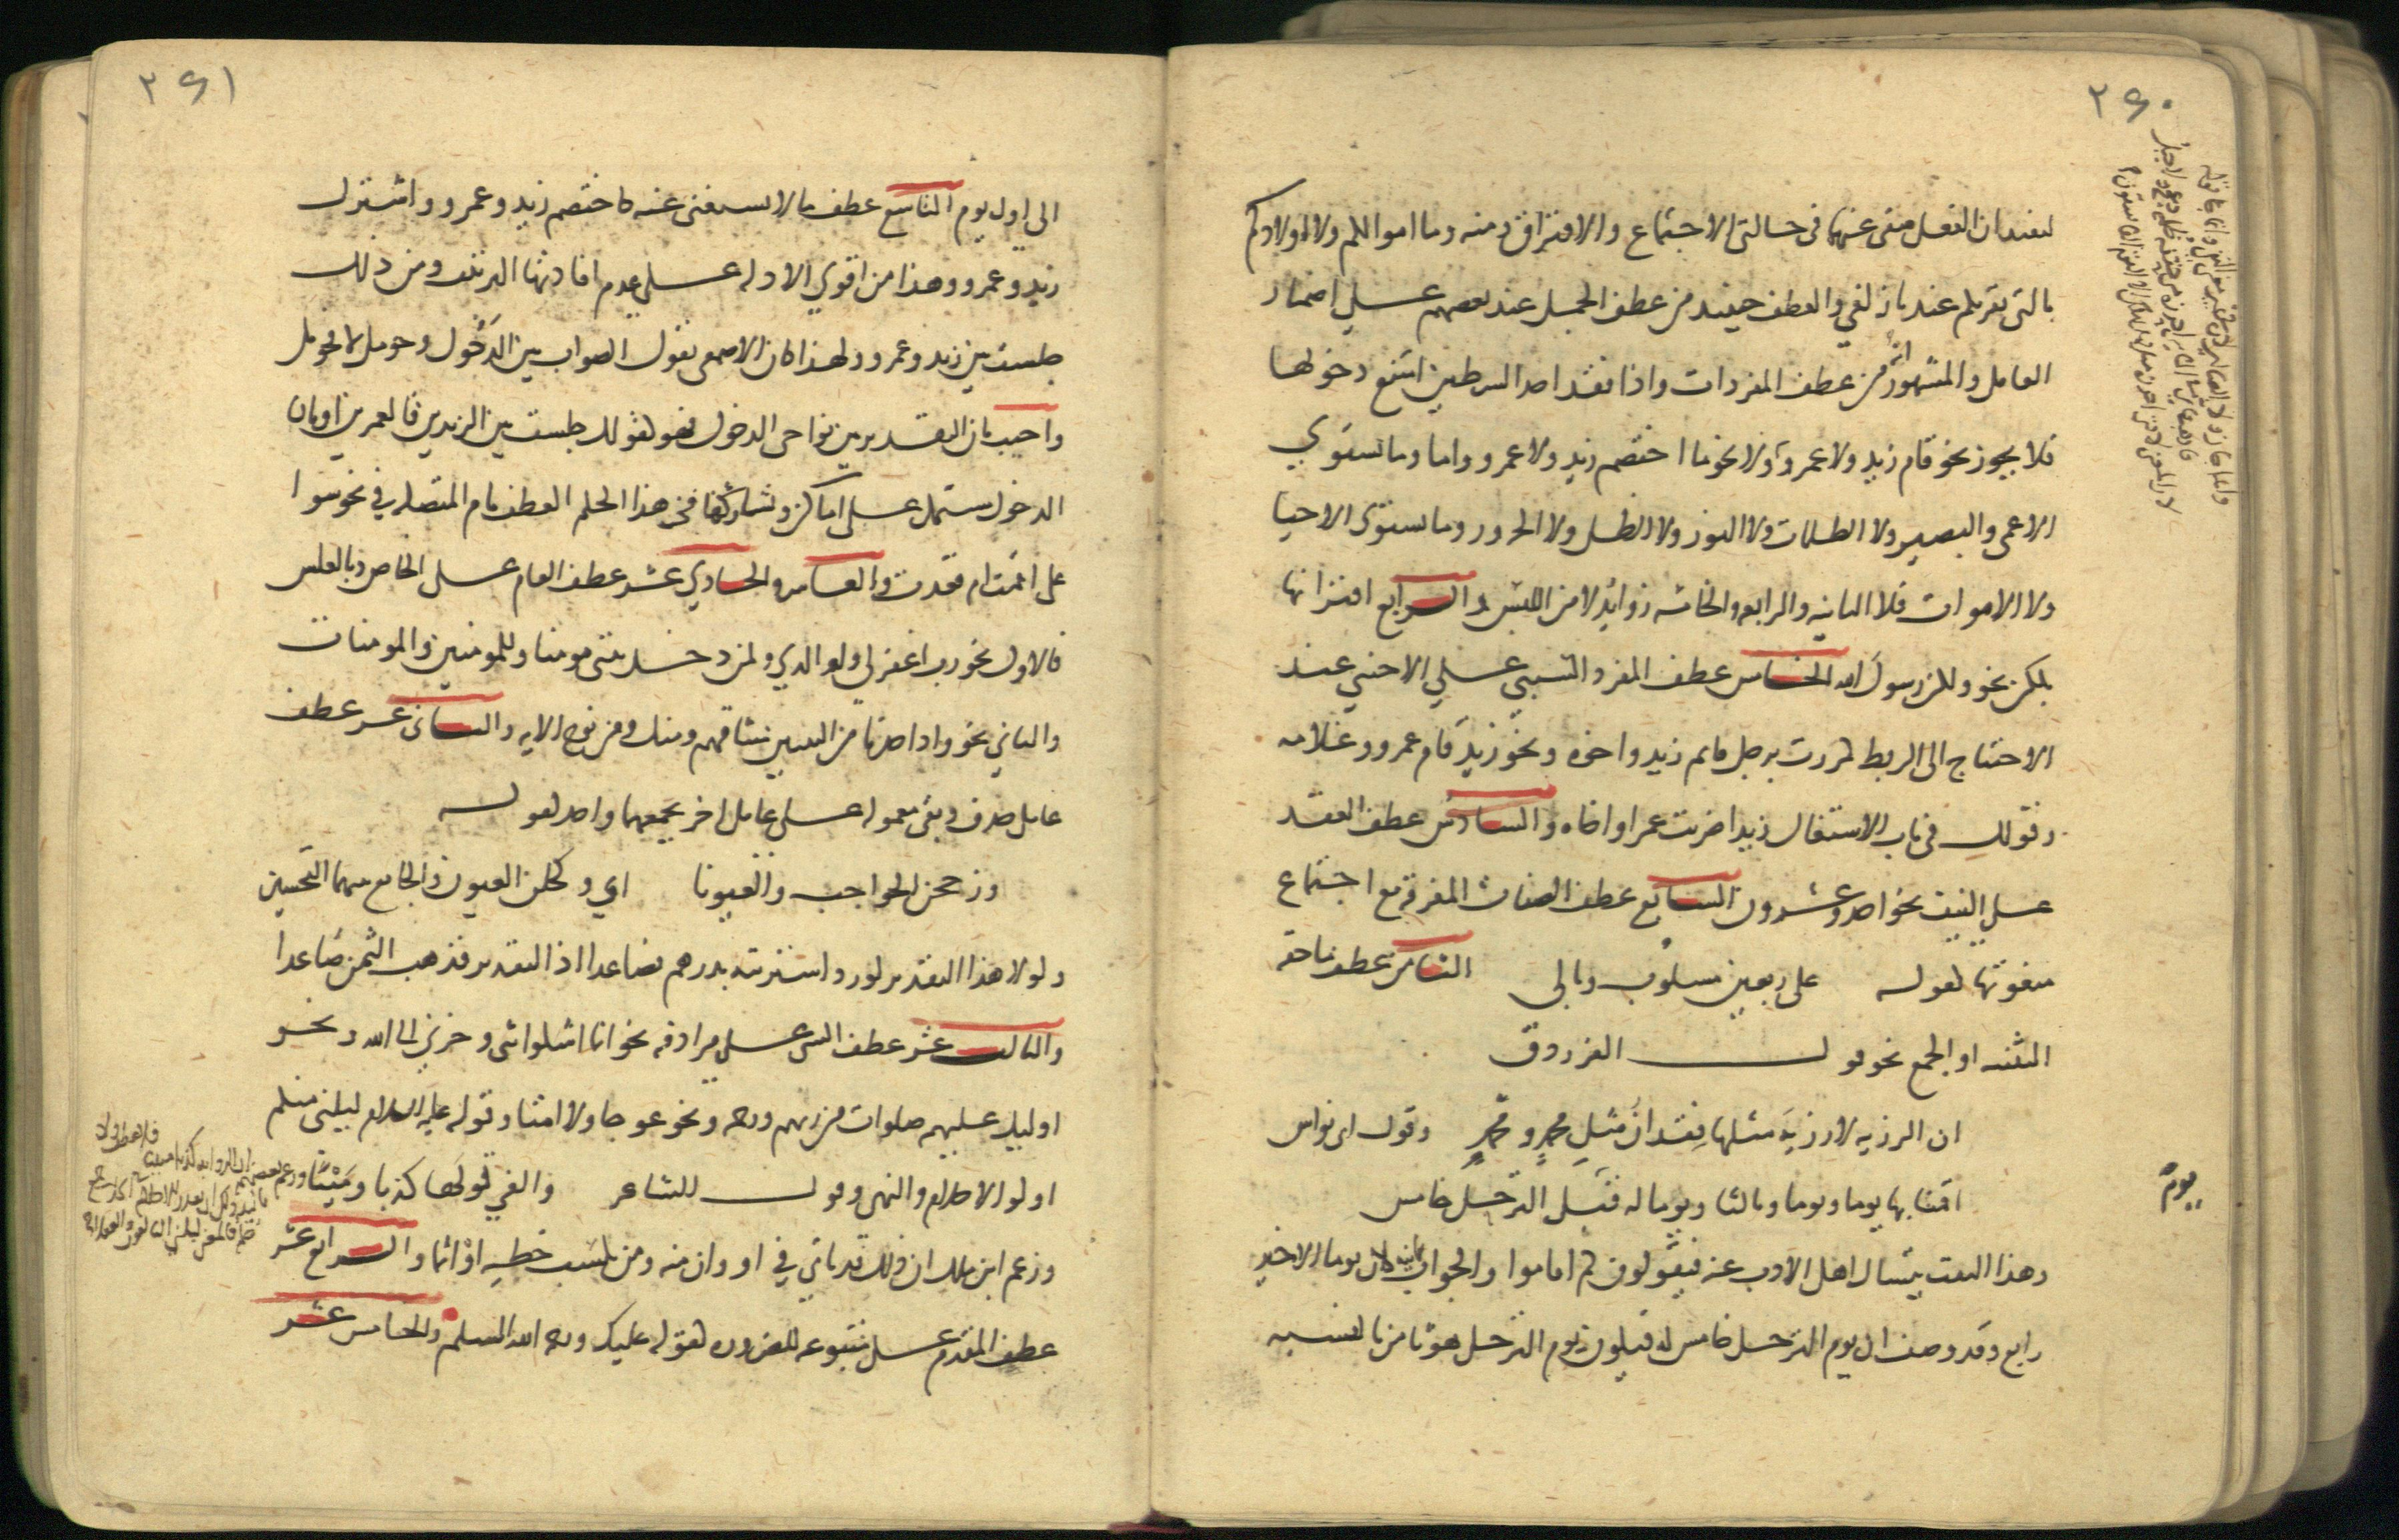 ٢٦٠
ليفيد ان الفعل منفى عنهما فى حالتى الاجتماع والافتراق ومنه وما اموالكم ولا اولادكم
بالتى تقربكم عندنا زلفي والعطف حينيد من عطف الجمل عند بعضهم علي اضمار
العامل والمشهور انه من عطف المفردات واذا فقد احد الشرطين امتنع دخولها
فلا يجوز نحو قام زيد ولا عمرو ولا نحو ما اختصم زيد ولا عمرو واما وما يستوي
الاعمى والبصير ولا الظلمات ولا النور ولا الظل ولا الحرور وما يستوى الاحيا
ولا الاموات فلا الثانيه والرابعه والخامسه زوايد لامن اللبس والرابع اقترانها
بلكن نحو ولكن رسول الله الخامس عطف المفرد السببي علي الاجنبي عند
الاحتياج الى الربط كمررت برجل قايم زيد واخوه ونحو زيد قام عمرو وغلامه
وقولك فى باب الاشتغال زيدا ضربت عمرا واخاه والسادس عطف العقد
علي النيف نحو احد وعشرون السابع عطف الصفات المفرقه مع اجتماع
منعوتها كقوله على ربعين مسلوب وبالى الثامن عطف ما حقه
التثنيه او الجمع نحو قول الفرزدق
ان الرزيه لا رزية مثلها فقدان مثل محمد ومحمد وقول ابى نواس
اقمنا بها يوما ويوما وثالثا ويوما له قبل الترحل خامس
يوم
وهذا البيت يتسال اهل الادب عنه فيقولون كم اقاموا والجواب ثمانيه لان يوما الاخير
رابع وقد وصف ان يوم الترحل خامس له فيكون يوم الترحل هو ثامن بالنسبه
٢٦١
الى اول يوم التاسع عطف ما لا يستغنى عنه كاختصم زيد وعمرو واشترك
زيد وعمرو وهذا من اقوي الادله علي عدم افادتها الترتيب ومن ذلك
جلست بين زيد وعمرو ولهذا كان الاصمعى يقول الصواب بين الدخول وحومل لا فحومل
واجيب بان التقدير بين نواحى الدخول فهو كقولك جلست بين الزيدين فالعمرين او بان
الدخول مشتمل على اماكن وتشاركها فى هذا الحكم العطف بام المتصله في نحو سوا
على اقمت ام قعدت والعاشر والحادي عشر عطف العام على الخاص وبالعكس
فالاول نحو رب اغفر لي ولوالدي ولمن دخل بيتى مومنا وللمومنين والمومنات
والثاني نحو واذ اخذنا من النبيين ميثاقهم ومنك ومن نوح الايه والثانى عشر عطف
عامل حذف وبقى معموله على عامل اخر يجمعهما واحد كقوله
وزججن الحواجب والعيونا اي وكحلن العيون والجامع بينهما التحسين
ولولا هذا التقدير لورد اشتريته بدرهم فصاعدا اذ التقدير فذهب الثمن صاعدا
والثالث عشر عطف الشى على مرادفه نحو انما اشكوا بثى وحزني الى الله ونحو
اوليك عليهم صلوات من ربهم ورحمه ونحو عوجا ولا امتا وقوله عليه السلام ليليني منكم
اولوا الاحلام والنهى وقول الشاعر والفي قولها كذبا ومينا
وزعم ابن مالك ان ذلك قد ياتي في او وان منه ومن يكسب خطيه او اثما والرابع عشر
عطف المقدم على متبوعه للضروره كقوله عليك ورحمه الله السلام والخامس عشر